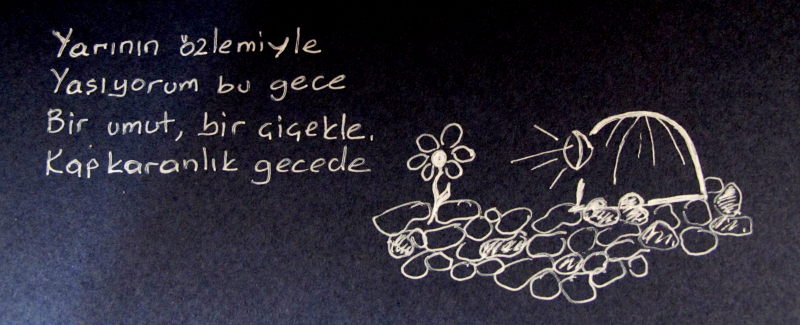 Yarının özlemiyle
Yaşıyorum bu gece
Bir umut, bir çiçekle.
Kapkaranlık gecede